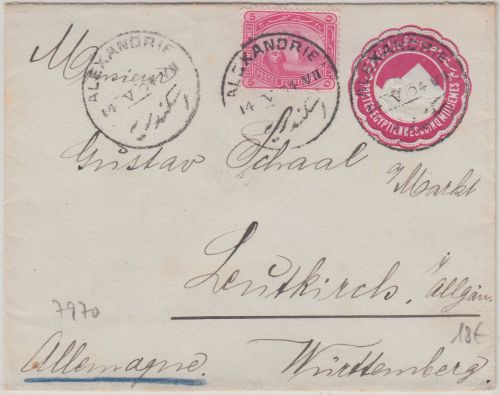 ALEXANDRIE
14 V 04 VII
ALEXANDRIE
14 V 04 VII
ALEXANDRIE
V 04 VII
5 5
POSTES EGYPTIENNES CINQ MILLIEMES
Monsieur
Gustav Schaal
Markt
Leutkirch. Allgäu
7970
18€
Allemagne. Württemberg.